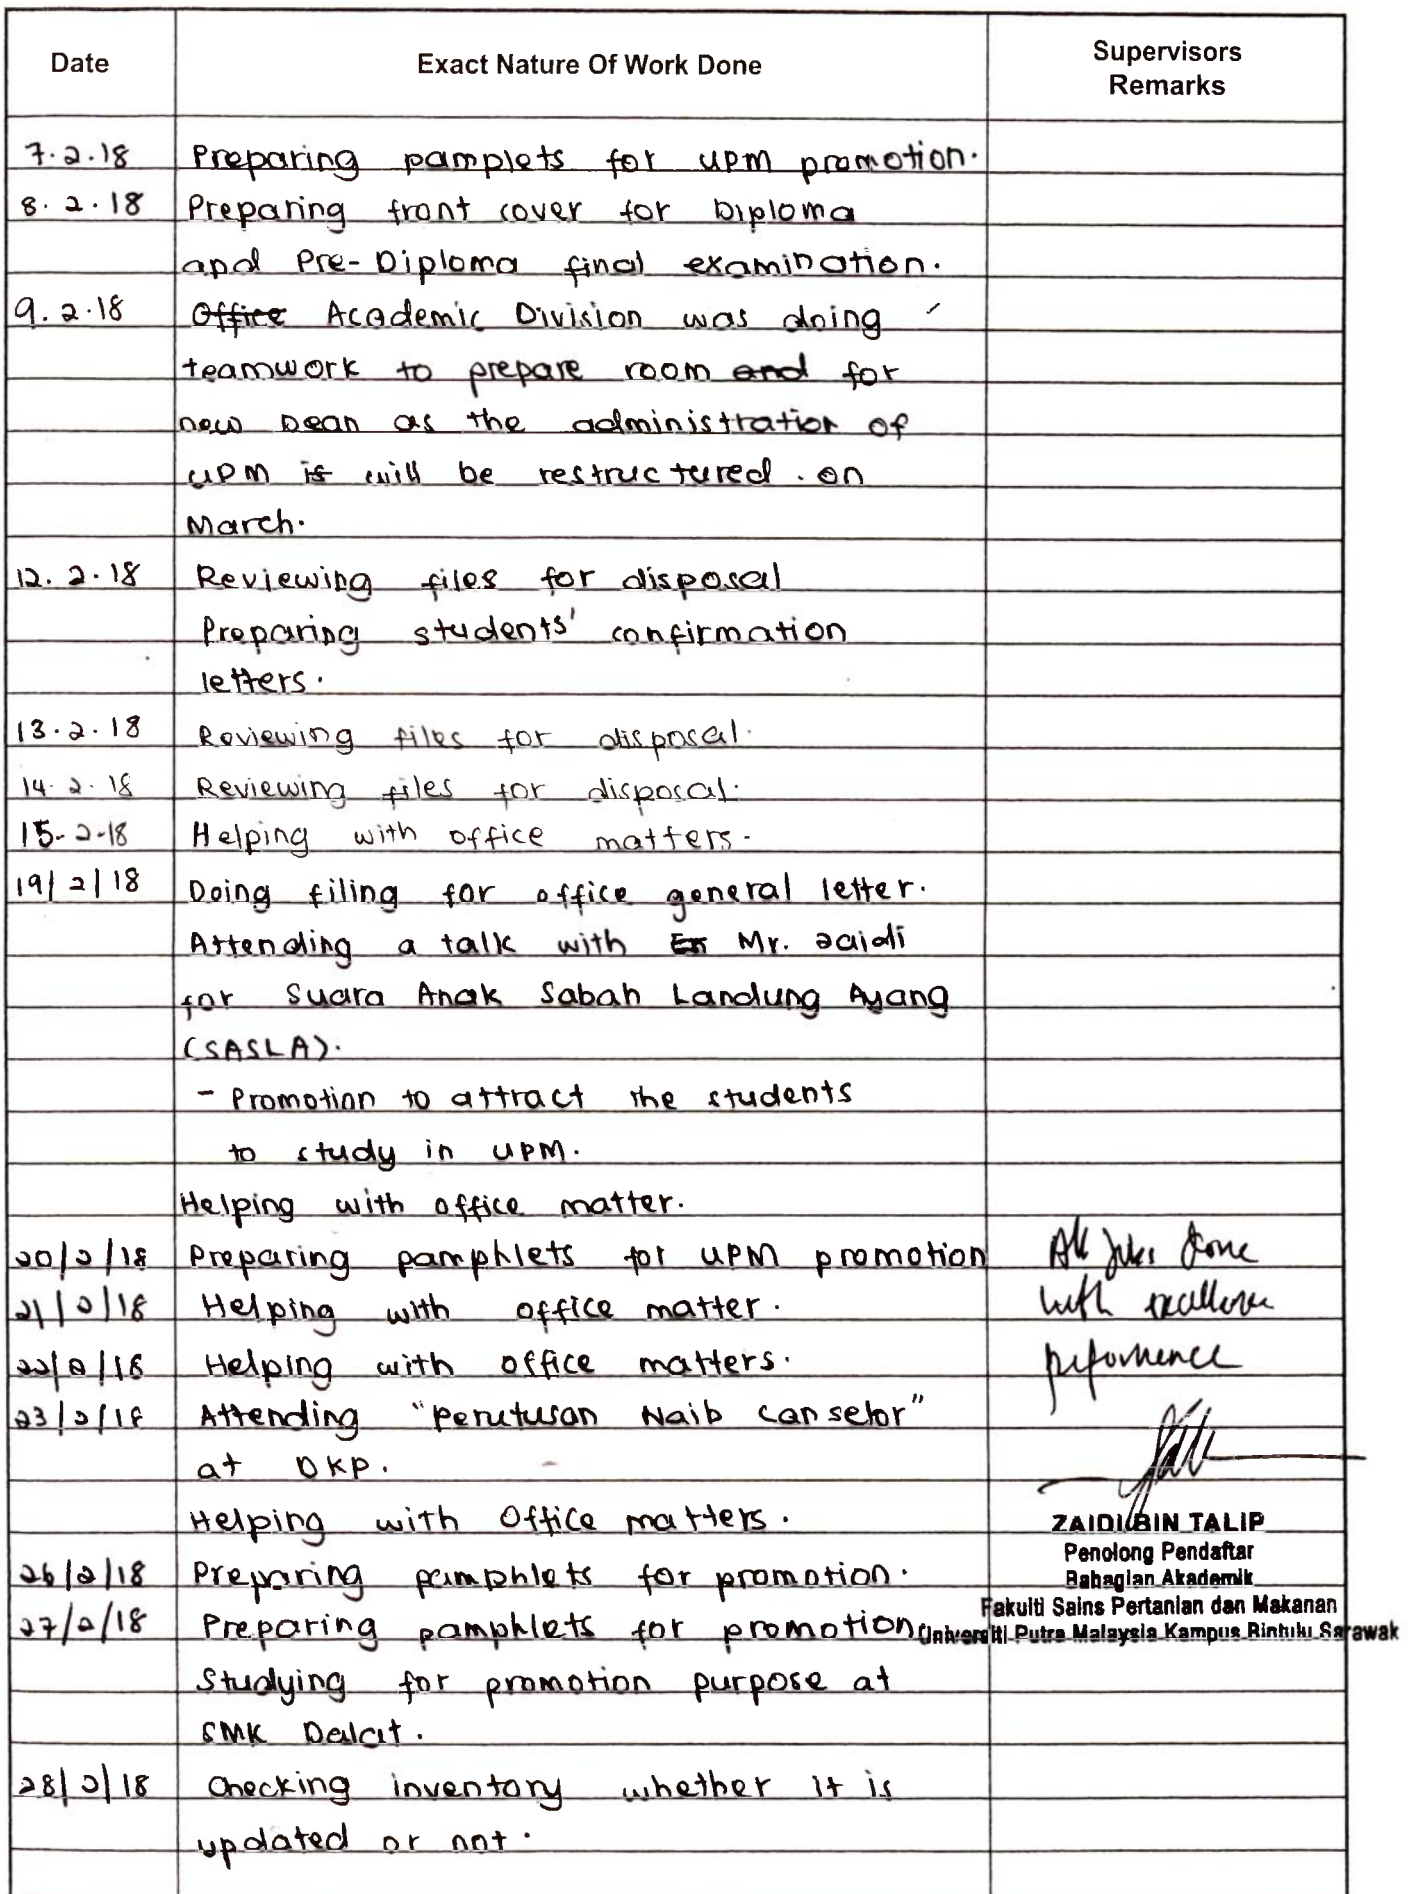 Date Exact Nature Of Work Done Supervisors
Remarks
7.2.18 Preparing pamplets for UPM promotion.
8.2.18 Preparing front cover for Diploma
and Pre-Diploma final examination.
9.2.18 Office Academic Division was doing
teamwork to prepare room and for
new Dean as the administration of
UPM is will be restructured. on
March.
12.2.18 Reviewing files for disposal
Preparing students' confirmation
letters.
13.2.18 Reviewing files for disposal.
14.2.18 Reviewing files for disposal.
15-2-18 Helping with office matters.
19/2/18 Doing filing for office general letter.
Attending a talk with En Mr. Zaidi
for Suara Anak Sabah Landung Ayang
(SASLA).
- Promotion to attract the students
to study in UPM.
Helping with office matter.
20/2/18 Preparing pamphlets for UPM promotion All jobs done
21/2/18 Helping with office matter. with excellence
22/2/18 Helping with office matters. peformence
23/2/18 Attending "Perutusan Naib Canselor"
at DKP.
Helping with Office matters. ZAIDI BIN TALIP
Penolong Pendaftar
26/2/18 Preparing pamphlets for promotion. Bahagian Akademik
Fakulti Sains Pertanian dan Makanan
27/2/18 Preparing pamphlets for promotion. Universiti Putra Malaysia Kampus Bintulu Sarawak
Studying for promotion purpose at
SMK Dalat.
28/2/18 Checking inventory whether it is
updated or not.